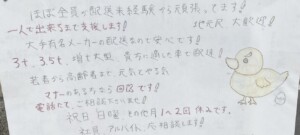 ほぼ全員で配送未経験から頑張ってます!
一人で出来ちまで支援します! 地元民 大歓迎!
大手有名メーカーの配送なので安心です!
3t、3.5t、増t 大型 貴方に適した車で配送!
若者から高齢者まで、元気でやる気
マナーのある方なら回答です!
電話にて、ご相談ください!
祝日 日曜 その他月1〜2回休みです。
社員、アルバイト、応相談します!